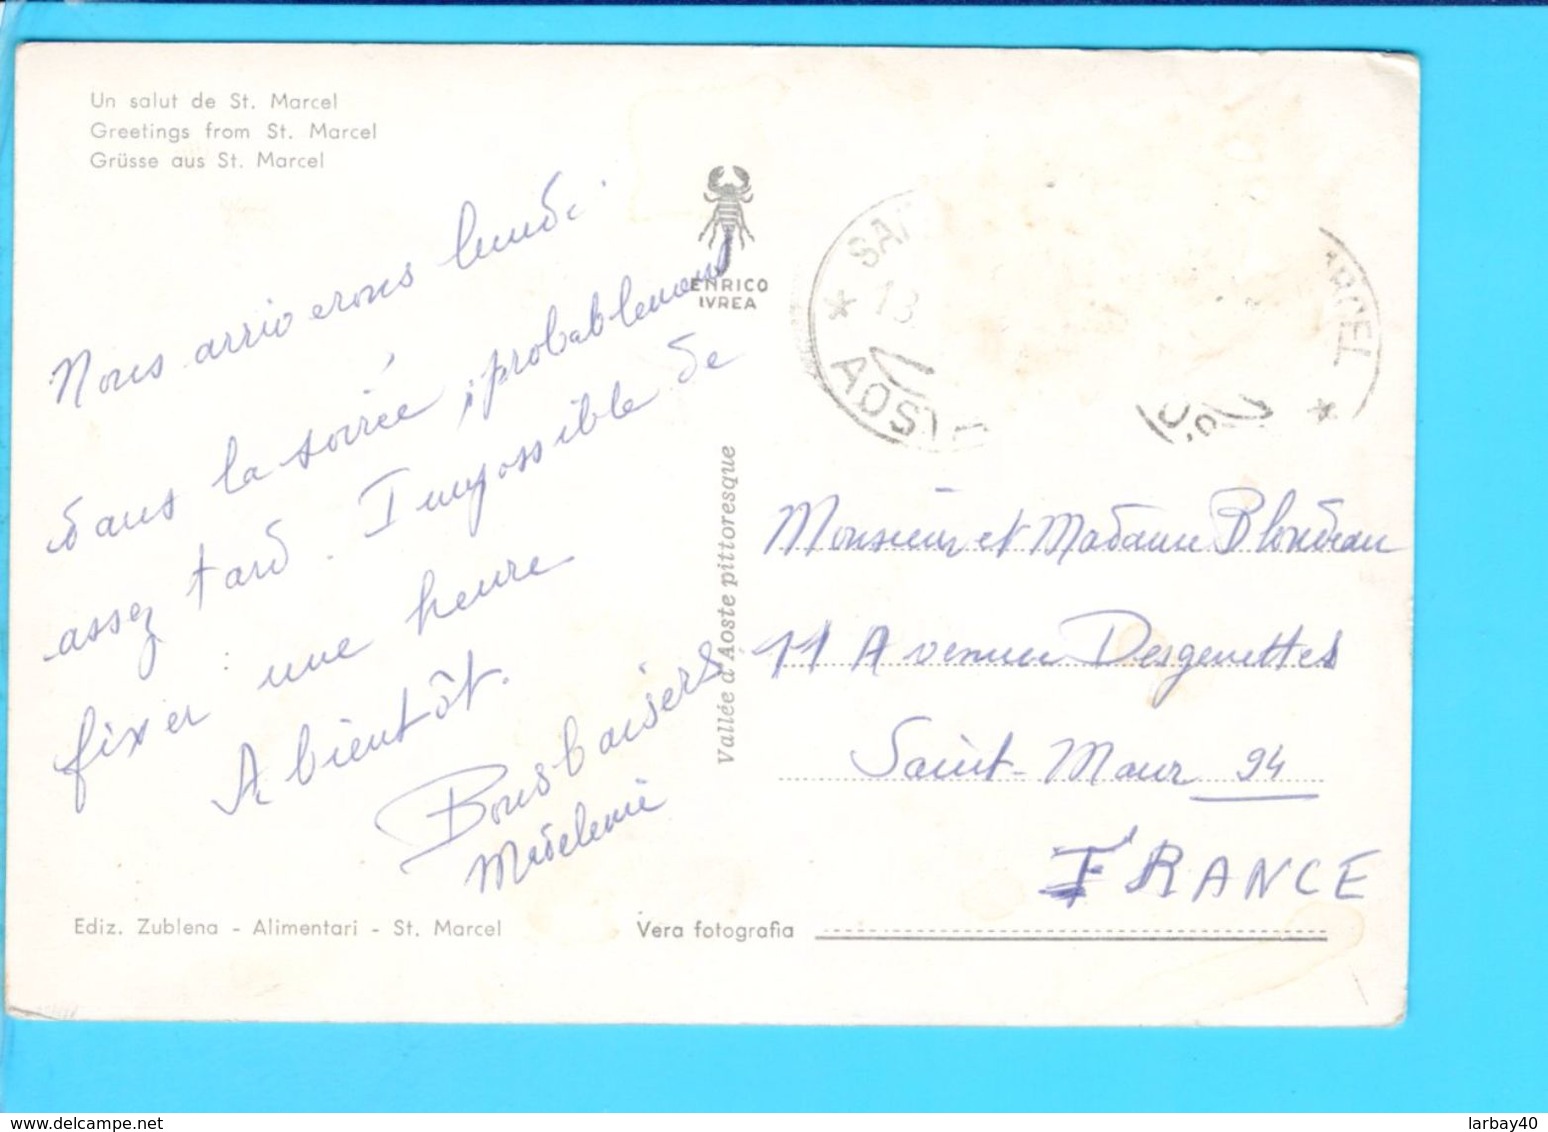 Un salut de St. Marcel
Greetings from St. Marcel
Grüsse aus St. Marcel
Nous arriverons lundi
dans la soirée, probablement
assez tard. Impossible de
fixer une heure
A bientôt.
Bons baisers
Madeleine
ENRICO
IVREA
Vallée d'Aoste pittoresque
13
AOSTA
Monsieur et Madame Blondeau
11 Avenue Desgenettes
Saint-Maur 94
FRANCE
Ediz. Zublena - Alimentari - St. Marcel
Vera fotografia
www.delcampe.net
larbay40